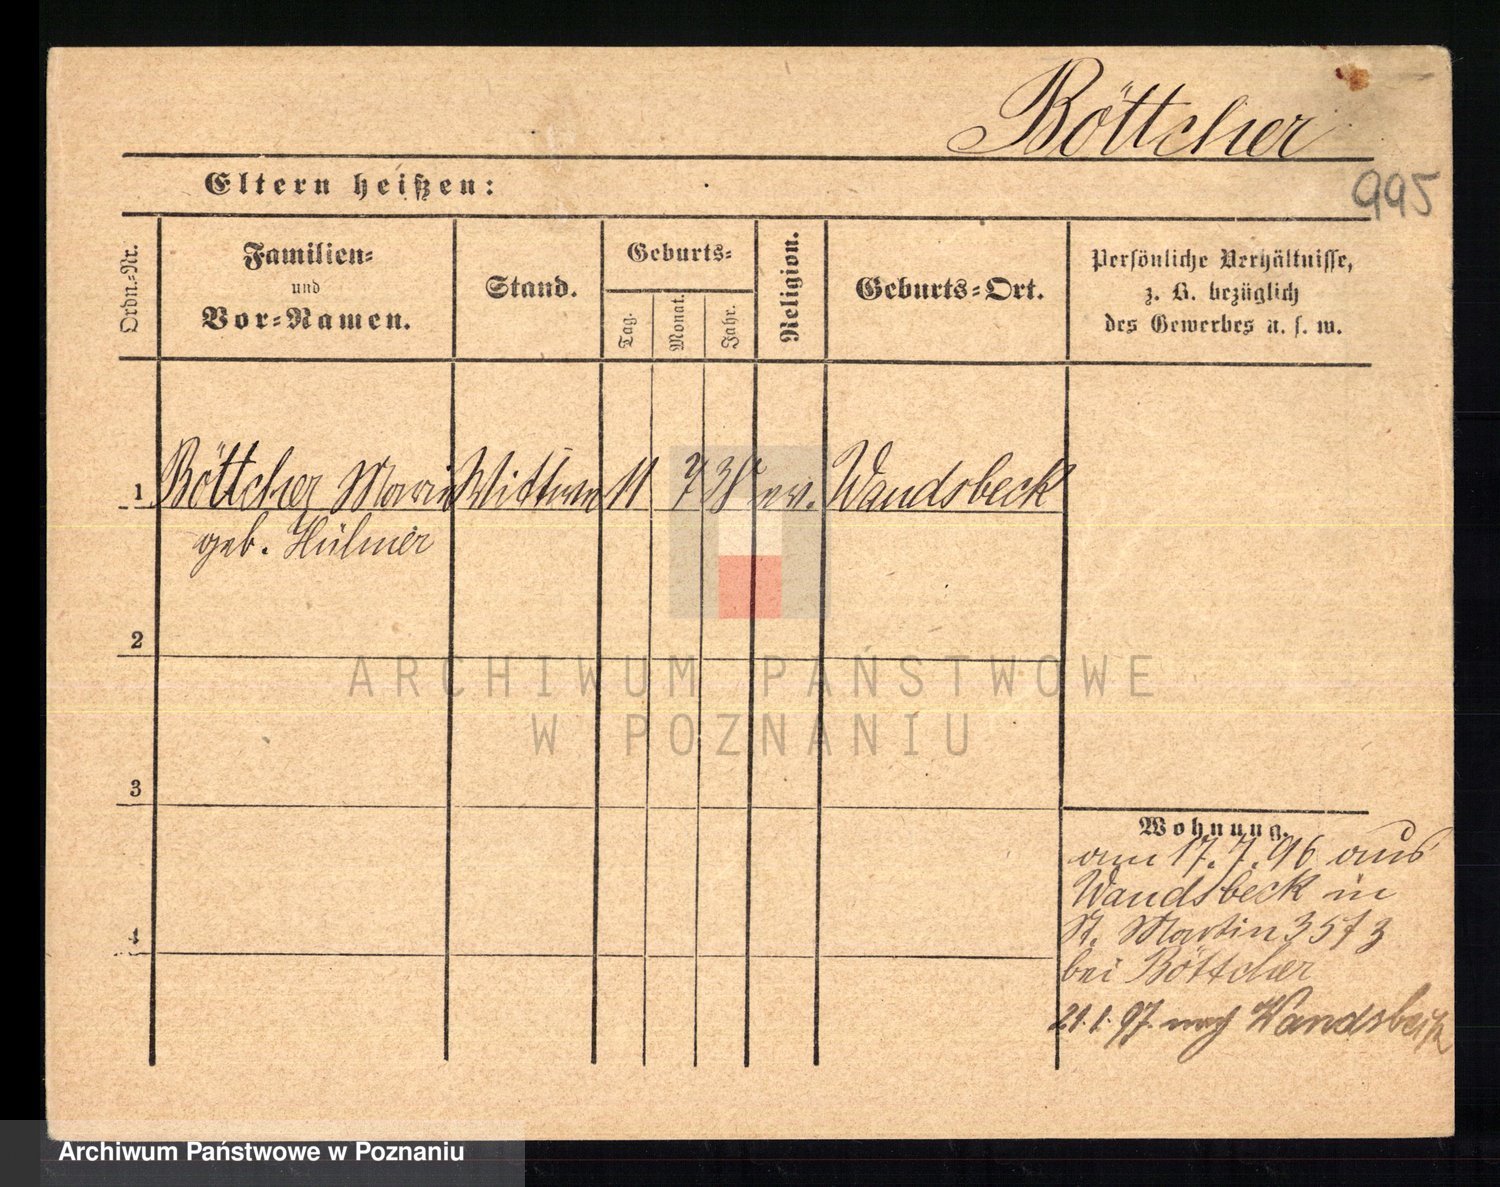 Böttcher
995
Eltern heißen:
Ordn.-Nr.
Familien-
und
Vor-Namen.
Stand.
Geburts-
Tag.
Monat.
Jahr.
Religion.
Geburts-Ort.
Persönliche Verhältnisse,
z. B. bezüglich
des Gewerbes u. s. w.
1 Böttcher Marie Wittwe 11 7 38 ev. Wandsbeck
geb. Hülmer
2
3
4
Wohnung.
am 17. 7. 96 aus
Wandsbeck in
St. Martin 357 3
bei Böttcher
21. 1. 97. nach Wandsbeck
ARCHIWUM PAŃSTWOWE
W POZNANIU
Archiwum Państwowe w Poznaniu